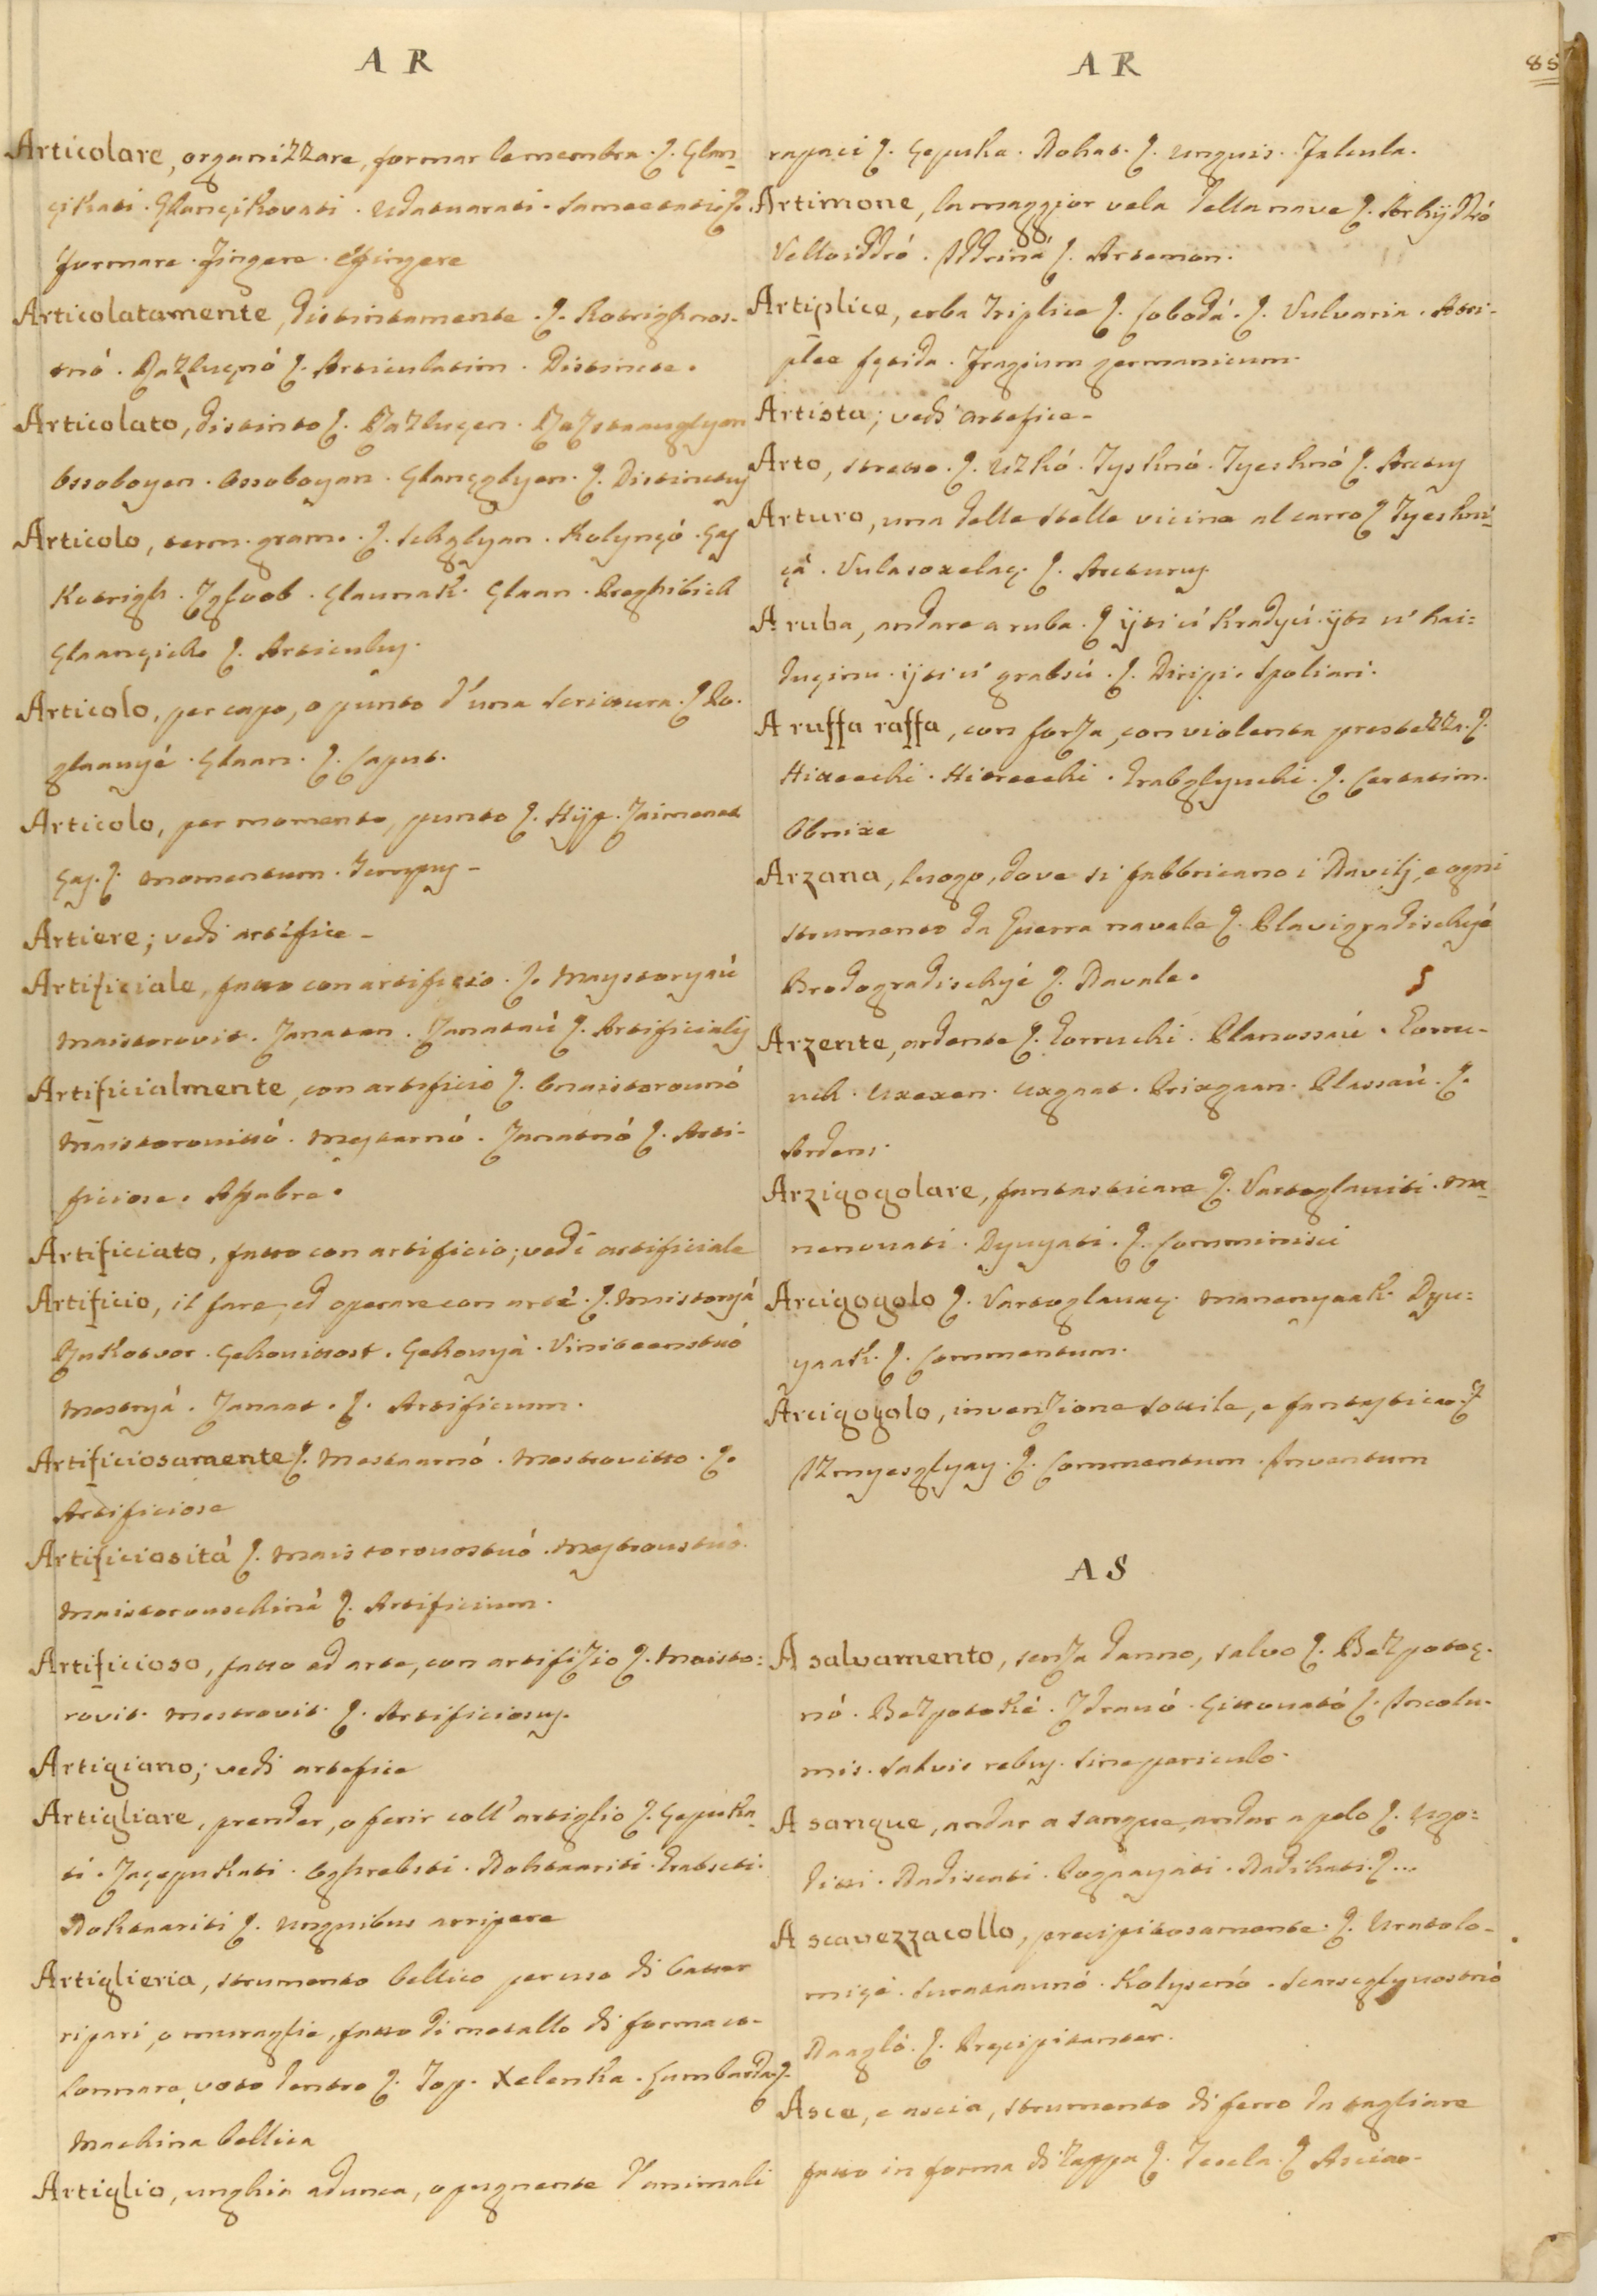 A R
Articolare, organizzare, formar le membra. Glan-
çikati. Glançikovati. Udatuarati.
formare. Fingere. Effingere
Articolatamente, distintamente. Kotrighnos-
tnó. Razluçnó. Articulatim. Distincte.
Articolato, distinto. Razluçen. Razstaauglyen
Ossoboyen. Ossoboyan. Glançglyen. Distinctus
Articolo, term. gram. Sckglyan. Kolynçó.Ças
Kotrigh. Zgfoob. Glaunak. Glaan. Preghibich
Glaançich. Articulus.
Articolo, per capo, o punto d'una scrittura. Po-
glaauyé. Glaan. Caput.
Articolo, per momento, punto. Hijp.
Ças. momentum. Tempus-
Artiere; vedi artifice-
Artificiale, fatto con artificio. Maystoryaú
maistorovit. Zanatan. Zanataú. Artificialis
Artificialmente, con artificio.
maistorovittó. Mestarnó. Zanatnó. Arti-
ficiose. Affabre.
Artificiato, fatto con artificio; vedi artificiale
Artificio, il fare, ed operare con arte.
Rukotvor. Gekovittost. Gekouyá.
mestryá. Zanaat. Artificium.
Artificiosamente. Mestaarnó. Mestrovitto.
Artificiose
Artificiositá. maistorovostvó.
maistorouschiná. Artificium.
Artificioso, fatto ad arte, con artifizio. Maisto:
rovit. mestrovit. Artificiosus.
Artigiano; vedi artefice
Artigliare, prender, o ferir coll'artiglio. Çapuka-
ti. Zaçepukati. Oghrebsti. Nohtaariti. Grabseti.
Nohtaariti. Unguibus arripere
Artiglieria, strumento bellico per uso di batter
ripari, o muraglie, fatto di metallo di forma co-
lonnare, voto dentro. Top. Xelenka. Lumbarda.
Machina bellica
Artiglio, unghia adunca, o pugnente d'animali
A R
85
rapaci. Çepuka. Nohat. Unguis. Falcula.
Artimone, la maggior vela della nave.
Artemon.
Artiplice, erba Triplice. Lobodá. Vulvaria. Atri-
plex fetida. Fragium germanicum.
Artista; vedi artefice-
Arto, stretto. Uzkó. Tysknó. Tyesknó. Arctus
Arturo, una delle stelle vicine al carro.
çá. Vulasoxelaç. Arcturus
A ruba, andare a ruba. ijti ú Kradyú. ijti ú hai:
duçinu. ijti ú grabsú. Diripi. Spoliari.
A ruffa raffa, con forza, con violenta prestezza.
Hitreechi. Grabglyuchi. Certatim.
Obnixe
Arzana, luogo, dove si fabbricano i Navilj, e ogni
strumento da Guerra navale. Plavigradischyé
Brodogradischyé. Navale.
Arzente, ardente. Gorruchi. Planossaú. Gorru-
uch. Uxexen. Uxgaat. Prixgaan. Plassaú.
Ardens.
Arzigogolare, fantasticare. Vartoglaviti. Ma-
nenovati. Dyuyati. Comminisci
Arcigogolo. Vartoglavaç. Manenyaak. Dyu:
yaak. Commentum.
Arcigogolo, invenzione sottile, e fantastica.
Izmyesglyay. Commentum. Inventum
A S
A salvamento, senza danno, salvo. Bezpotoç-
nó. Bezpotoké. Zdravó. Incolu-
mis. Salvis rebus. Sine periculo.
A sangue, andar a sangue, andar a pelo. Ugo:
ditti. Nadiscati. Pogaayati. Nadikati....
A scavezzacollo, precipitosamente. Uratolo-
Kolysenó.
Naagló. Precipitanter.
Asce, e ascia, strumento di ferro da tagliare
fatto in forma di Zappa. Tesela. Ascia-